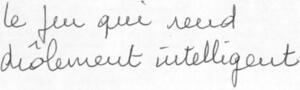 le jeu qui rend
drôlement intelligent